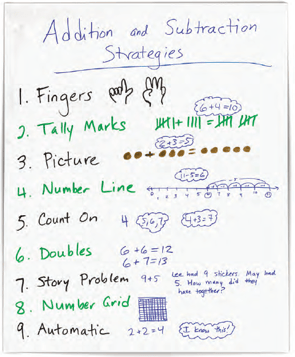 Addition and Subtraction
Strategies
1. Fingers
6+4=10
2. Tally Marks
2+3=5
3. Picture
11-5=6
4. Number Line
5. Count On 4 5,6,7 4+3=7
6. Doubles 6+6=12
6+7=13
7. Story Problem 9+5 Lee had 9 stickers. May had
5. How many did they
have together?
8. Number Grid
9. Automatic 2+2=4 I know this!